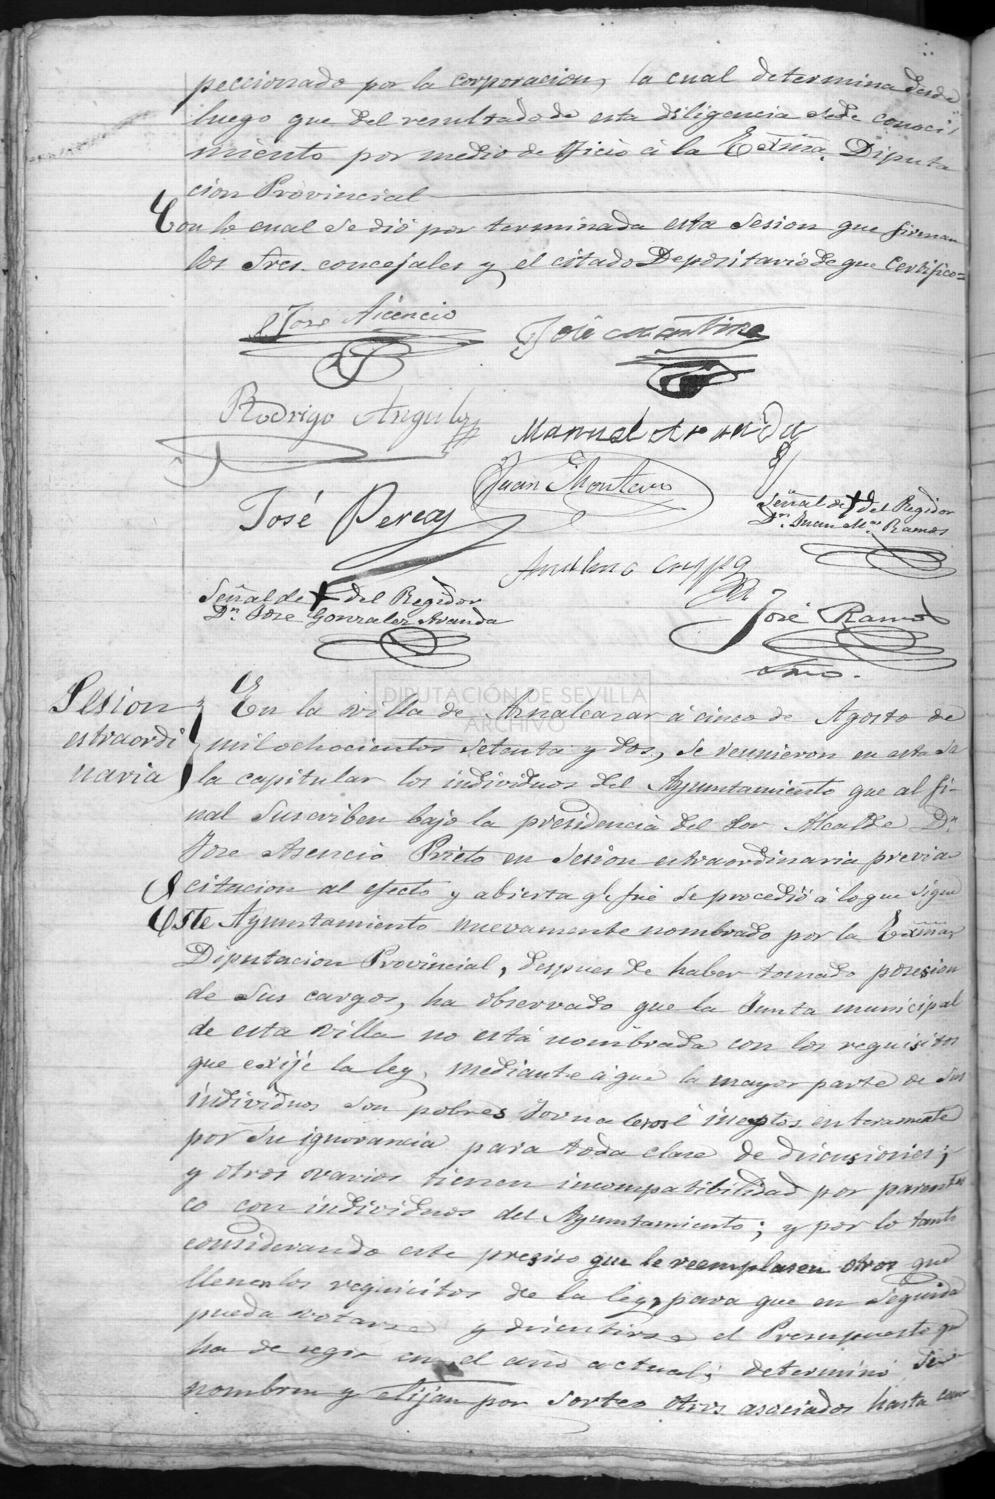 peccionado por la corporacion, la cual determina desde
luego que del resultado de esta diligencia se de conoci-
miento por medio de oficio á la Exma. Diputa
cion Provincial
Con lo cual se dió por terminada esta sesion que firman
los Sres. concejales y el citado Depositario de que Certifico=
José Asencio
José Martinez
Rodrigo Angulo
Manuel Aranda
Juan Montero
José Perea
Señal de + del Regidor
Dn. Juan Ms. Ramos
Anselmo Crespo
Señal de + del Regidor
Dn. Jose Gonzalez Aranda
José Ramos
Srio.
DIPUTACIÓN DE SEVILLA
ARCHIVO
Sesion
estraordi
naria
En la villa de Aznalcazar á cinco de Agosto de
mil ochocientos setenta y dos, se reunieron en esta sa
la capitular los individuos del Ayuntamiento que al fi-
nal suscriben bajo la presidencia del Sor Alcalde Dn.
Jose Asencio Prieto en sesion estraordinaria previa
citacion al efecto y abierta qe. fué se procedió á lo que sigue
Este Ayuntamiento nuevamente nombrado por la Exma
Diputacion Provincial, despues de haber tomado posesion
de sus cargos, ha observado que la Junta municipal
de esta villa no está nombrada con los requisitos
que exije la ley, mediante á que la mayor parte de sus
individuos son pobres Jornaleros é ineptos enteramente
por su ignorancia para toda clase de discusiones;
y otros ovarios tienen incompatibilidad por parentes
co con individuos del Ayuntamiento; y por lo tanto
considerando este preciso que le reemplasen otros que
llenen los requisitos de la ley, para que en seguida
pueda votarse y discutirse el Presupuesto qe
ha de regir en el año actual; determinó se
nombren y elijan por sorteo otros asociados hasta com